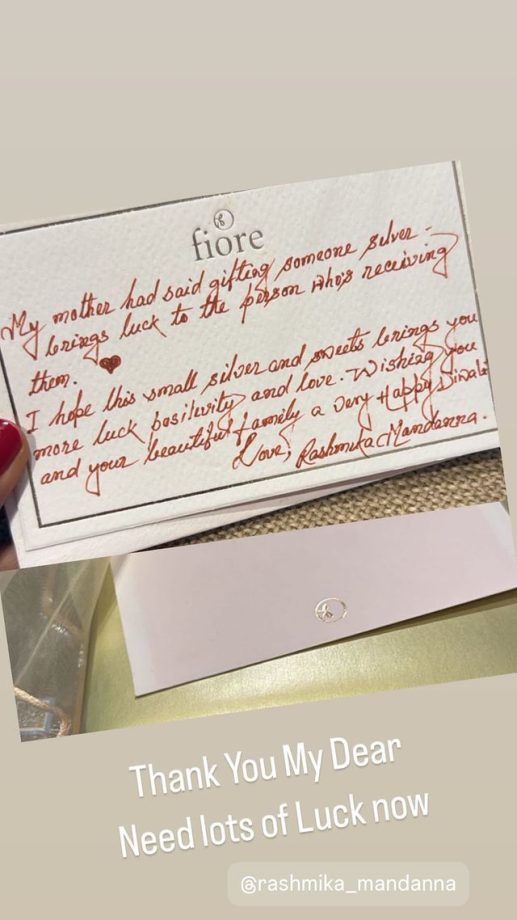 fiore
My mother had said gifting someone silver -
brings luck to the person who's receiving
them. ♥
I hope this small silver and sweets brings you
more luck positivity and love. Wishing you
and your beautiful family a very Happy Diwali
Love, Rashmika Mandanna.
Thank You My Dear
Need lots of Luck now
@rashmika_mandanna